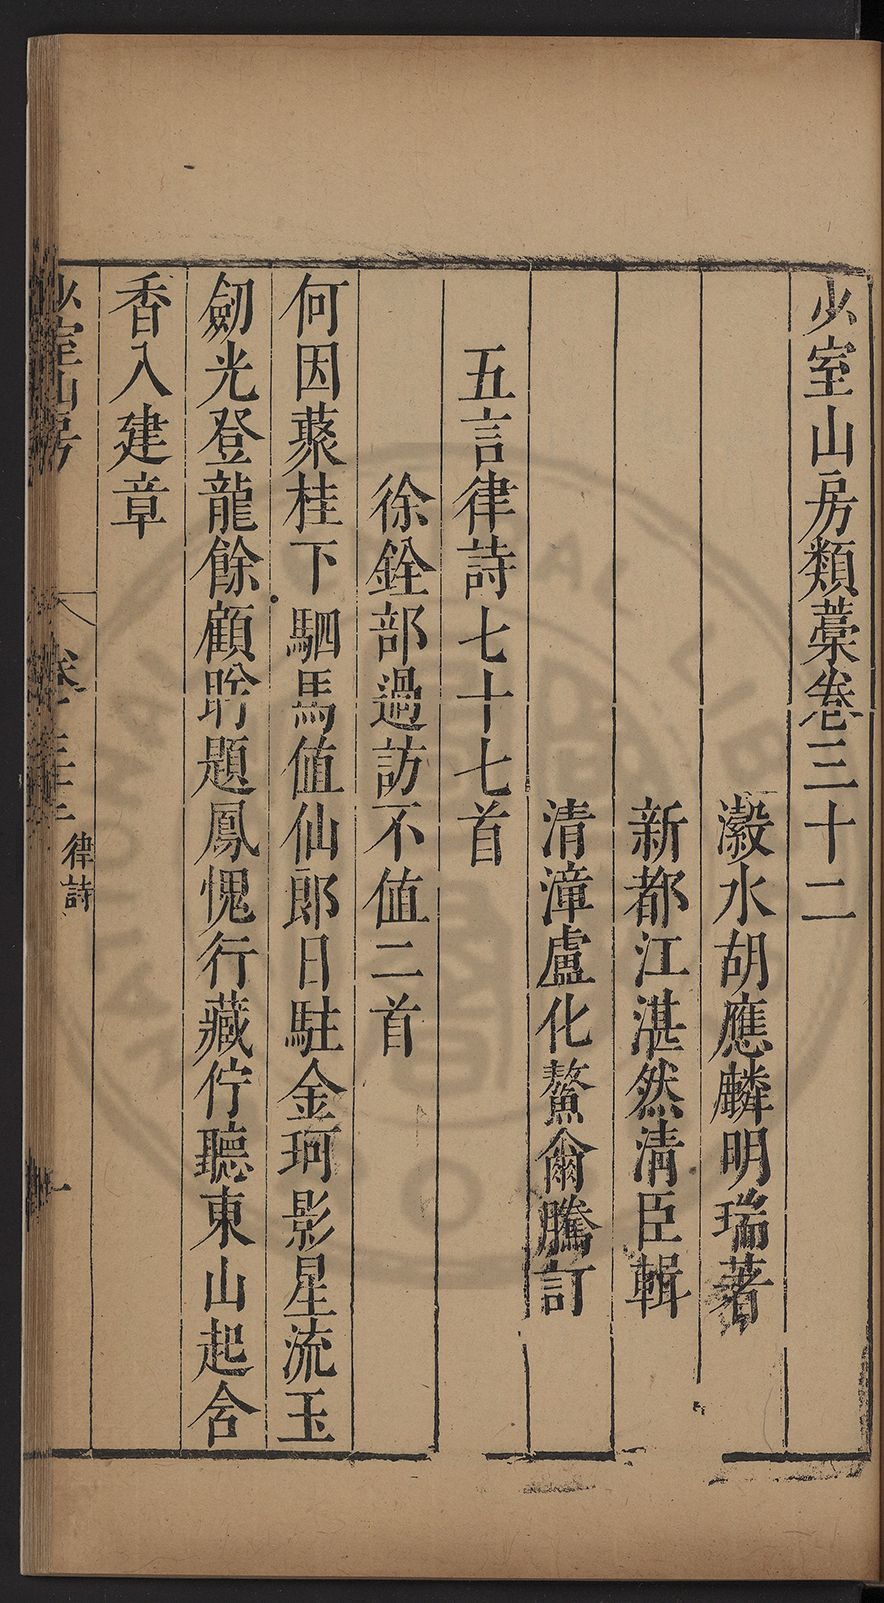 少室山房類藁卷三十二
瀫水胡應麟明瑞著
新都江湛然清臣輯
清漳盧化鰲爾騰訂
五言律詩七十七首
徐銓部過訪不值二首
何因藂桂下駟馬值仙郎日駐金珂影星流玉
劒光登龍餘顧盻題鳳愧行藏佇聽東山起含
香入建章
少室山房
卷三十二
律詩
一